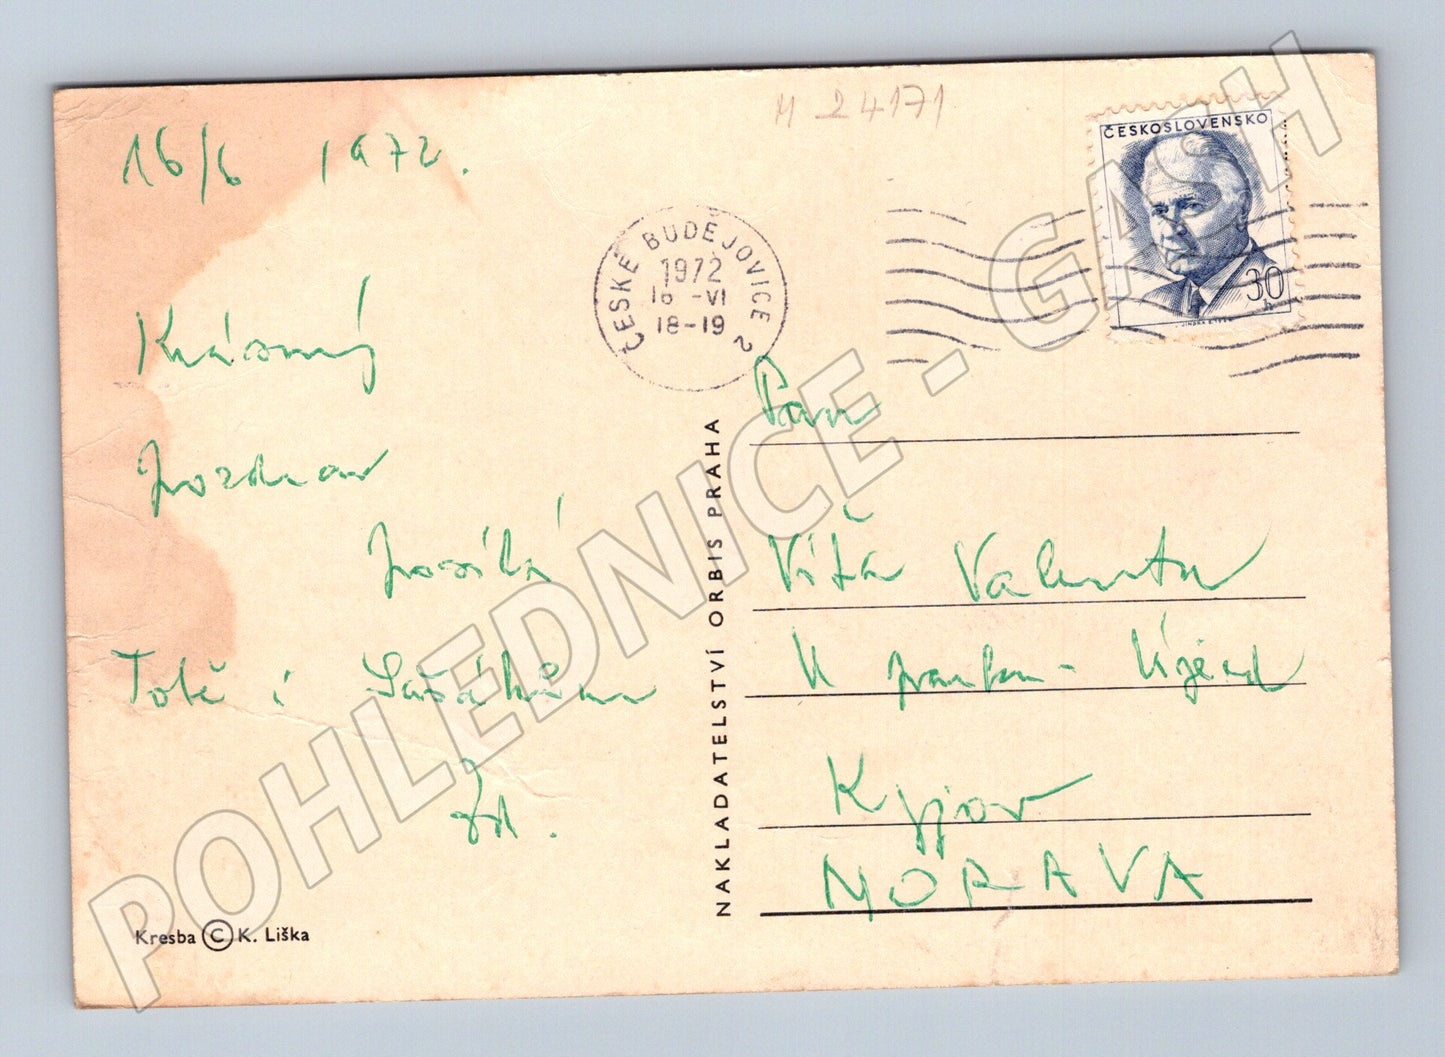 M 24171
16/6 1972.
ČESKOSLOVENSKO
30
h
ČESKÉ BUDĚJOVICE 2
1972
16 -VI
18-19
Krásný
pozdrav
posílá
Totě i
Zd.
NAKLADATELSTVÍ ORBIS PRAHA
Panu
Víťa Valenta
U parku - Újezd
Kyjov
MORAVA
Kresba © K. Liška
POHLEDNICE - GASH